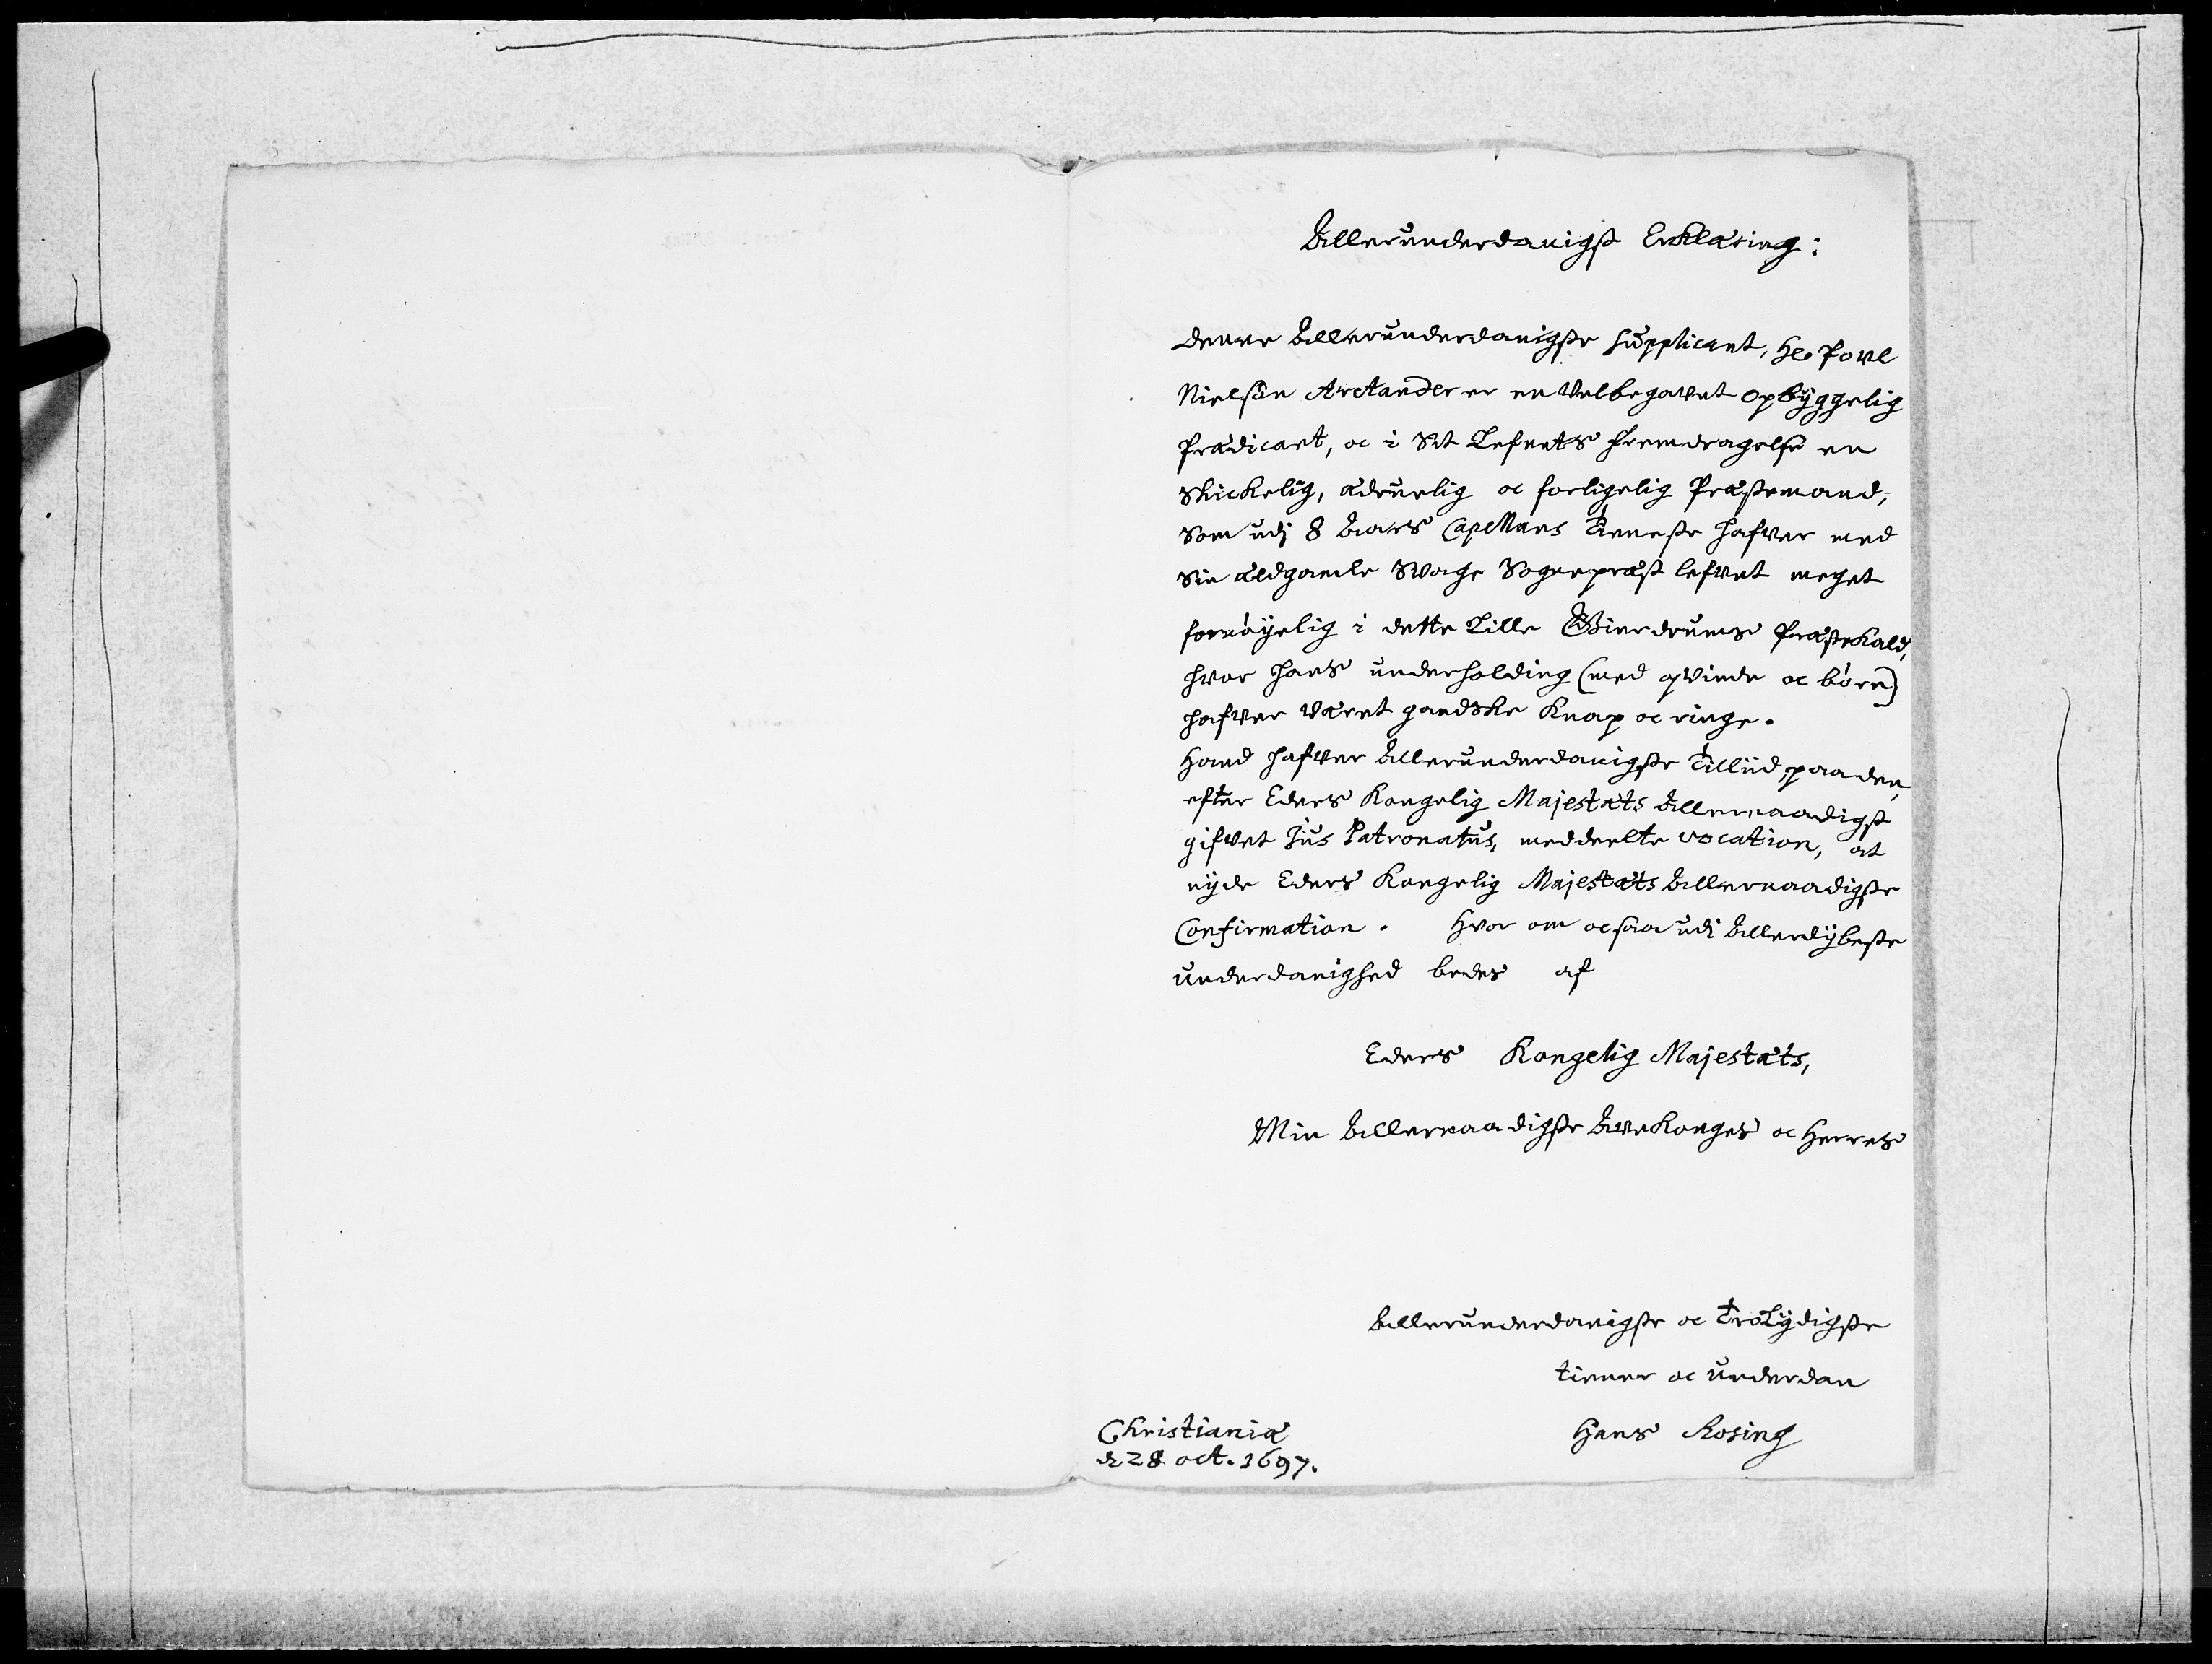 Allerunderdanigst Erklæring:
Denne Allerunderdanigste Supplicant, Hr Povl
Nielsön Arctander er en Velbegavet opbyggelig
Prædicant, oc i Sit Lefnets fremdragelse en
Skickelig, ædruelig oc forligelig Præstemand,
Som udj 8 Aars Capellans Tieneste hafver med
Sin ældgamle Svage Sognepræst lefvet meget
fornöyelig i dette Lille Gierdrums Præstekald,
hvor hans underholding (med qvinde oc börn)
hafver været gandske Knap oc ringe.
Hand hafver Allerunderdanigste Tilliid, paa den,
efter Eders Kongelig Majestæts Allernaadigst
gifvet Jus Patronatus, meddeelte vocation, at
nyde Eders Kongelig Majestæts Allernaadigste
Confirmation. Hvor om ocsaa udi Allerdybeste
underdanighed bedes af
Eders Kongelig Majestæts,
Min Allernaadigste Arfve Konges oc Herres
Allerunderdanigste oc Trolydigste
tiener oc underdan
Hans Rosing
Christianiæ
d 28 oct. 1697.